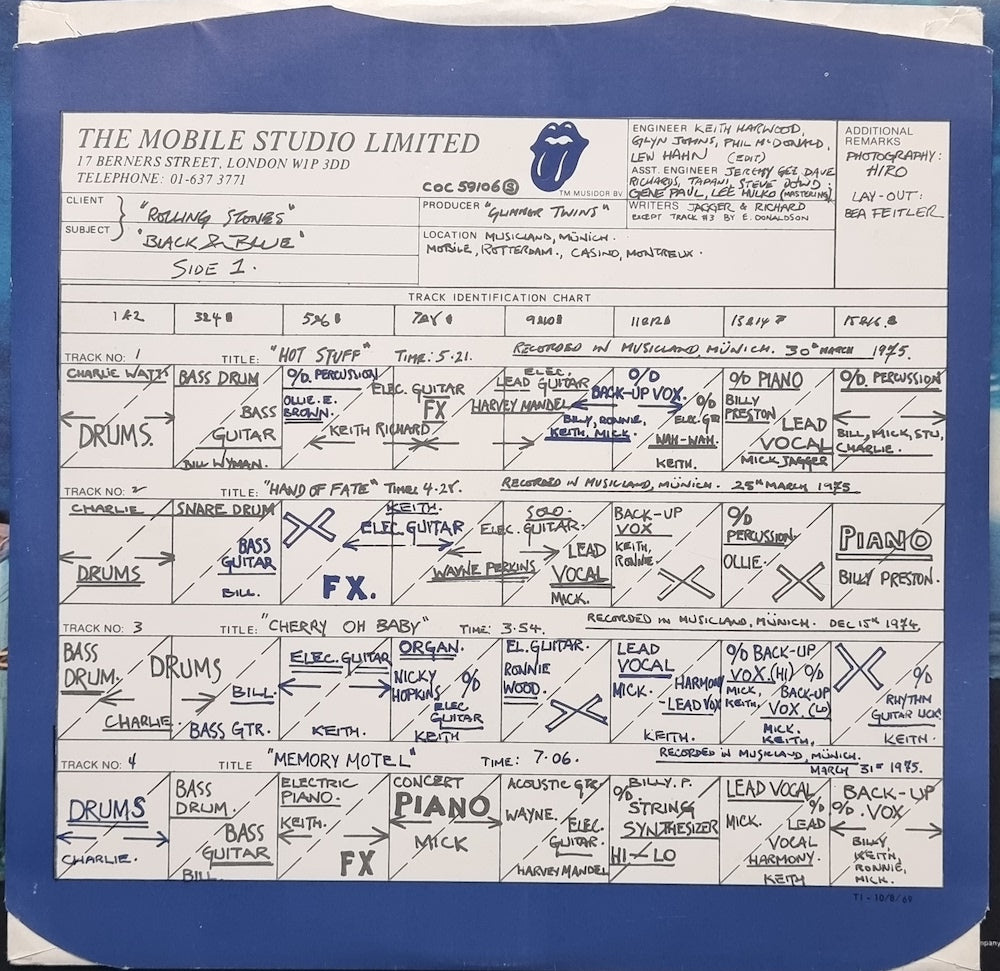 THE MOBILE STUDIO LIMITED
17 BERNERS STREET, LONDON W1P 3DD
TELEPHONE: 01-637 3771
COC 59106 S
TM MUSIDOR BV
ENGINEER KEITH HARWOOD,
GLYN JOHNS, PHIL McDONALD,
LEW HAHN (EDIT)
ASST. ENGINEER JEREMY GEE, DAVE
RICHARDS, TAPANI, STEVE DOWD;
GENE PAUL, LEE HULKO (MASTERING)
WRITERS JAGGER & RICHARD
EXCEPT TRACK #3 BY E. DONALDSON
ADDITIONAL
REMARKS
PHOTOGRAPHY:
HIRO
LAY-OUT:
BEA FEITLER
CLIENT
SUBJECT
"ROLLING STONES"
"BLACK & BLUE"
SIDE 1.
PRODUCER "GLIMMER TWINS"
LOCATION MUSICLAND, MÜNICH.
MOBILE, ROTTERDAM., CASINO, MONTREUX.
TRACK IDENTIFICATION CHART
1&2 3&4 5&6 7&8 9&10 11&12 13&14 15&16
TRACK NO: 1 TITLE: "HOT STUFF" TIME: 5.21. RECORDED IN MUSICLAND, MÜNICH. 30th MARCH 1975.
CHARLIE WATTS
DRUMS.
BASS DRUM
BASS
GUITAR
BILL WYMAN.
O/D. PERCUSSION
OLLIE. E.
BROWN.
ELEC. GUITAR
FX
KEITH RICHARD
ELEC.
LEAD GUITAR
HARVEY MANDEL
O/D
BACK-UP VOX.
BILLY, RONNIE,
KEITH, MICK.
O/D
ELEC. GTR
WAH-WAH.
KEITH.
O/D PIANO
BILLY
PRESTON
LEAD
VOCAL
MICK JAGGER
O/D. PERCUSSION
BILL, MICK, STU,
CHARLIE.
TRACK NO: 2 TITLE: "HAND OF FATE" TIME: 4.28. RECORDED IN MUSICLAND, MÜNICH. 25th MARCH 1975
CHARLIE
DRUMS
SNARE DRUM
BASS
GUITAR
BILL.
FX.
KEITH.
ELEC GUITAR
SOLO.
ELEC. GUITAR.
WAYNE PERKINS
LEAD
VOCAL
MICK.
BACK-UP
VOX
KEITH,
RONNIE.
O/D
PERCUSSION.
OLLIE.
PIANO
BILLY PRESTON.
TRACK NO: 3 TITLE: "CHERRY OH BABY" TIME: 3.54. RECORDED IN MUSICLAND, MÜNICH. DEC 15th 1974.
BASS
DRUM.
DRUMS
CHARLIE.
BILL.
BASS GTR.
ELEC. GUITAR
KEITH.
ORGAN.
NICKY
HOPKINS
O/D
ELEC
GUITAR
KEITH
EL. GUITAR.
RONNIE
WOOD.
LEAD
VOCAL
MICK.
HARMONY
-LEAD VOX
KEITH.
O/D BACK-UP
VOX. (HI)
MICK,
KEITH.
O/D
BACK-UP
VOX. (LO)
MICK.
KEITH.
O/D
RHYTHM
GUITAR LICK
KEITH.
TRACK NO: 4 TITLE "MEMORY MOTEL" TIME: 7.06. RECORDED IN MUSICLAND, MÜNICH.
MARCH 31st 1975.
DRUMS
CHARLIE.
BASS
DRUM.
BASS
GUITAR
BILL
ELECTRIC
PIANO.
KEITH.
FX
CONCERT
PIANO
MICK
ACOUSTIC GTR
WAYNE.
ELEC.
GUITAR.
HARVEY MANDEL
BILLY. P.
O/D
STRING
SYNTHESIZER
HI-LO
LEAD VOCAL
MICK.
O/D
LEAD
VOCAL
HARMONY.
KEITH
BACK-UP
O/D. VOX
BILLY,
KEITH,
RONNIE,
MICK.
T1 - 10/8/69